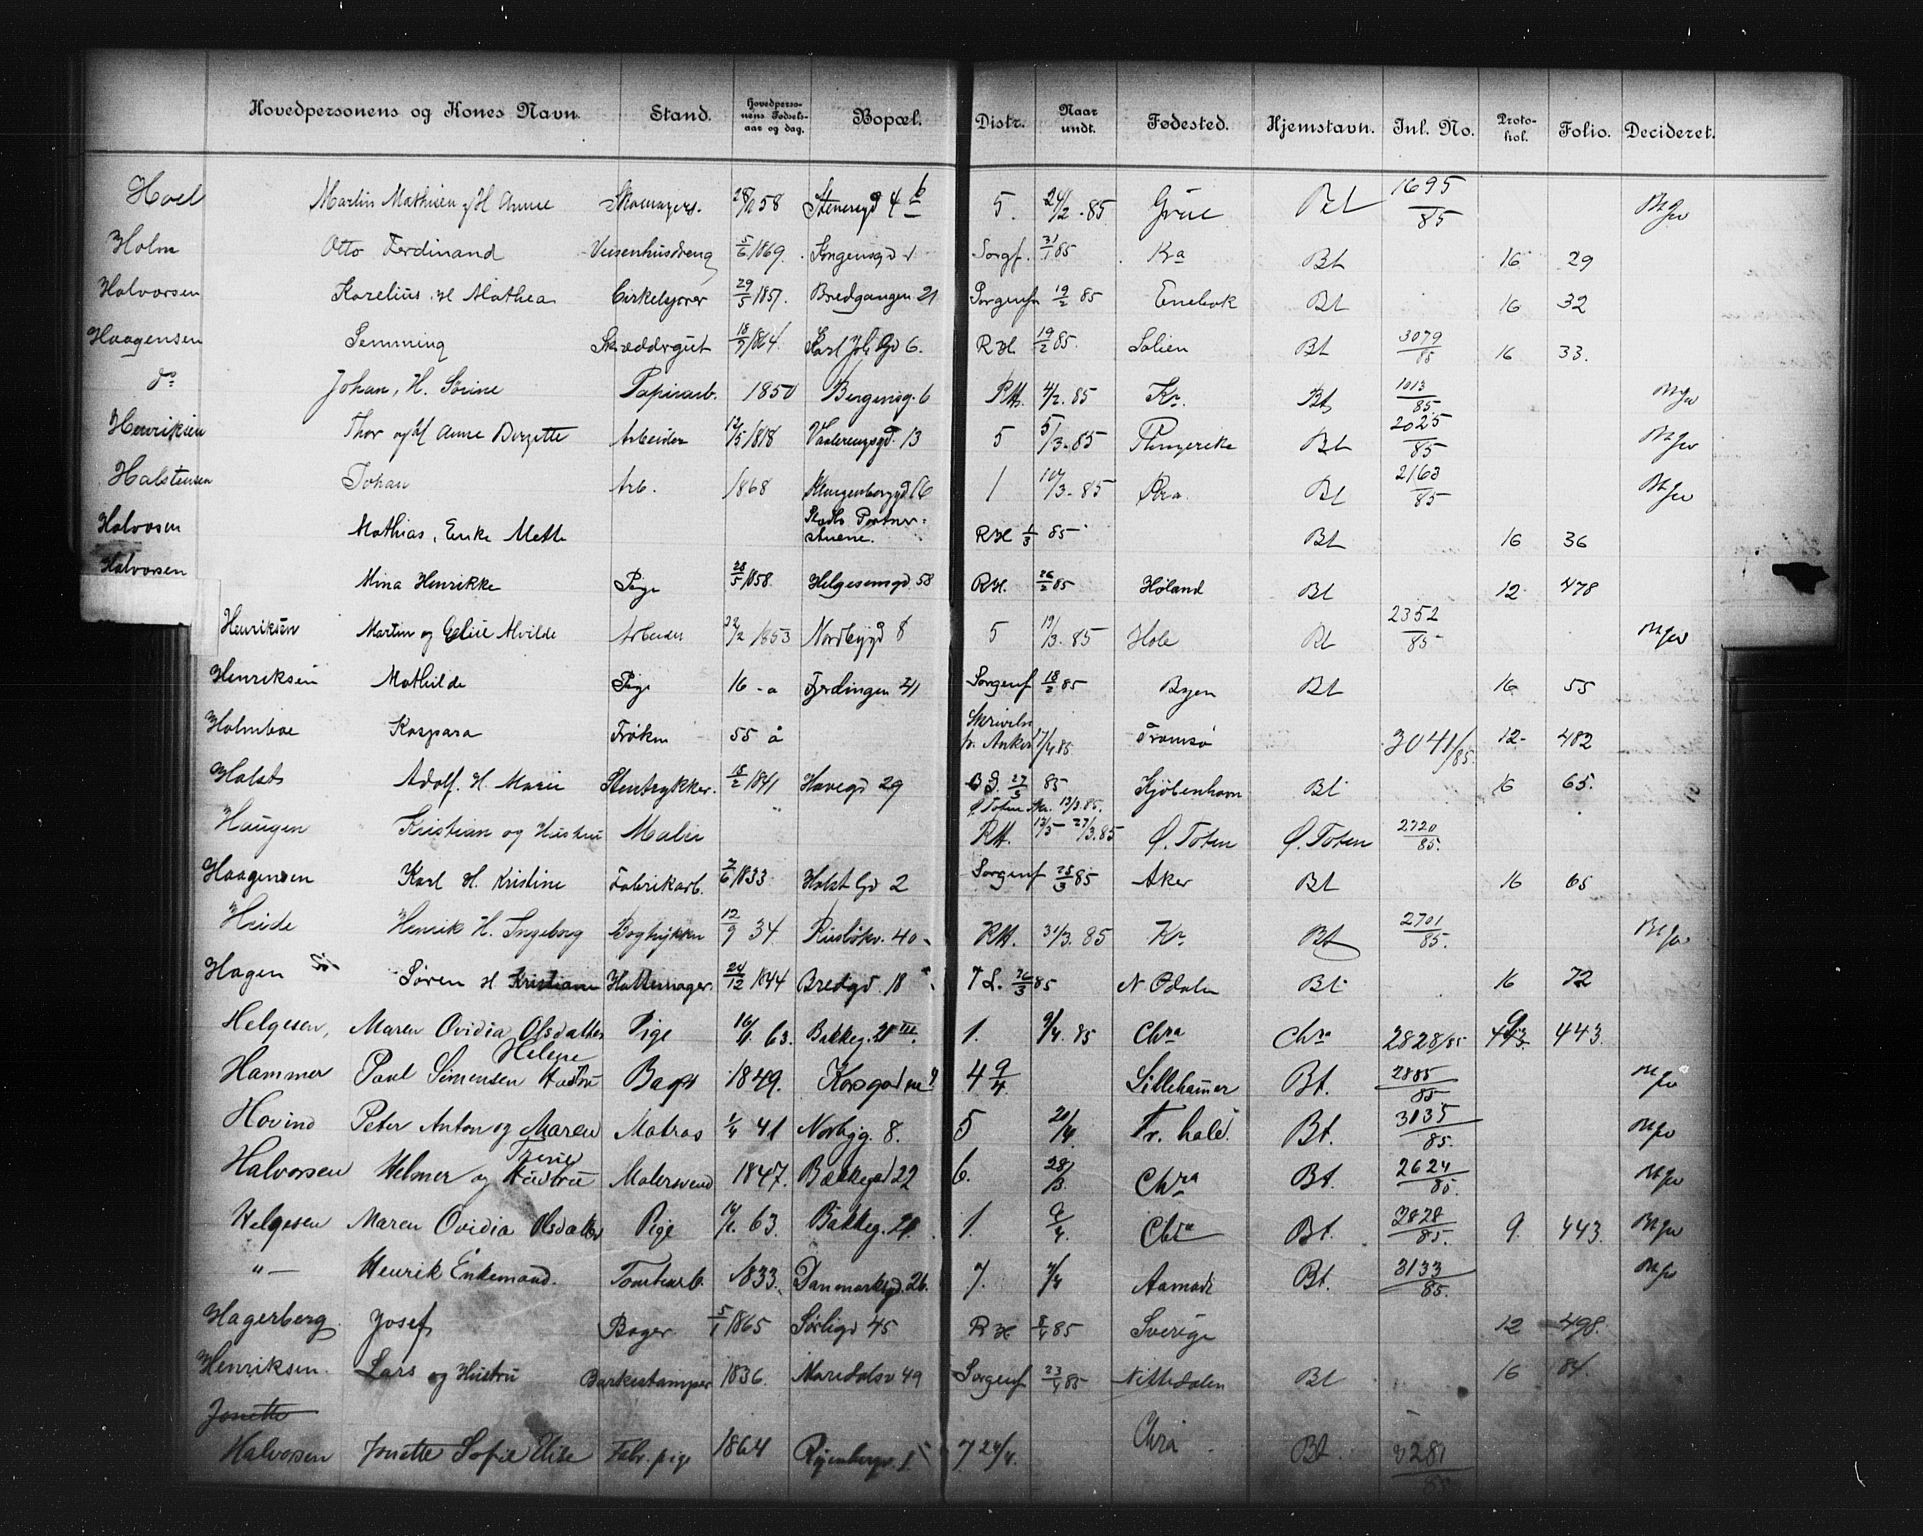 Hovedpersonens og Kones Navn. Stand. Hovedpersonens Fødselsaar og dag. Bopæl. Distr. Naar undt. Fødested. Hjemstavn. Inl. No. Protokol. Folio. Decideret.
Hoel Martin Mathisen og H Anne Skomagers. 58 Stenersgd 4 b 5. 24/2-85 Grue Bt 1695/85
Holm Otto Ferdinand 5/6 1869. 1 Sorgf. 31/1 85 Kra Bt 16 29
Halvorsen Karelius H Mathea 29/5 1857. Bredgangen 21 Sorgenfr 19/2 85 Enebak Bt 16 32
Haagensen Lemming Skræddergut 18/7 1864 Karl Joh Gd 6. RH 19/2 85. Solien Bt 3079/85 16 33.
do Johan, H. Sørine Papirarb. 1850 Bergensg. 6 RH. 4/2. 85 Kr. Bt 1013/85
Henriksen Thor og H Anne Bergette Arbeider 12/5 1818 Vaalerengsgd. 13 5 5/3-85 Ringerike Bt 2025/85
Halstensen Johan Arb. 1868 Klingenberggd 16 1 10/3-85 Kra. Bt 2163/85
Halvorsen Mathias, Enke Mette Stads Portner-stuene. RH 1/3 85 Bt 16 36
Halvorsen Mina Henrikke Pige 28/5 1858. Helgesensgd 58 RH. 26/2 85 Høland Bt 12 478
Henriksen Martin og Eline Alvilde Arbeider 22/2 1853 Nordbygd 8 5 19/3-85 Hole Bt 2352/85
Henriksen Mathilde Pige 16-a Fjerdingen 21 Sorgenf 18/2 85 Byen Bt 16 55
Holmboe Kaspara Frøken 55 å Skrivelse fr. Anker 17/4 85 Tromsø 3041/85. 12- 482
Holst Adolf. H. Marie Stentrykker. 18/2 1841 Havegd 29 B.S. 27/3 85 Kjöbenhavn Bt 16 65.
Haugen Kristian og Hustru Malie Ø Toten 13/3.85. RH. 12/3 27/3.85 Ø. Toten Ø. Toten 2720/85.
Haagensen Karl H. Kristine Fabrikarb. 7/6 1833 Holst Gd 2 Sorgenf 25/3 85 Aker Bt 16 65
Heide Henrik H. Ingeborg Bogtrykker 12/9 34. 40 RH. 31/3. 85 Kr Bt 2701/85.
Hagen Søren H Kristiane Hattemager. 24/12 1844 Bredgd 18 7 L. 26/3 85 N Odalen Bt 16 72
Helgesen, Maren Ovidia Olsdatter Pige 16/1. 63. Bakkeg. 21 III. 1. 9/4. 85 Chra Chra 2828/85 9 443.
Hammer Paul Simensen Hustru Helene Bager 1849. Korsgaden 4 9/4 Lillehammer Bt. 2885/85
Hovind Peter Anton og Maren Matros 1/4 41 Norbyg. 8. 5 20/4. Fr. hald. Bt. 3135/85.
Halvorsen Helmer og Hustru Trine Malersvend 1847. Bakkegd 22 6. 28/3. Chra Bt. 2624/85.
Helgesen Maren Ovidia Olsdatter Pige 16/1. 63. Bakkeg. 21. 1. 9/4. Chra Bt. 2828/85. 9. 443.
" — Henrik Enkemand. Tomtearb. 1833. Danmarksgd. 26. 7. 9/4 Aamodt Bt. 3133/85.
Hagerberg. Josef Bager 5/1 1865 Sørligd 45 RH 8/4 85 Sverige 12 498.
Henriksen. Lars og Hustru Barkestamper 1836. Maridalsv 49 Sorgenf 23/4 85 Nittedalen Bt 16 84.
Jonette
Halvorsen Jonette Sofie Elise Fabr. pige 1864 7 24/4. Chra Bt. 3281/85